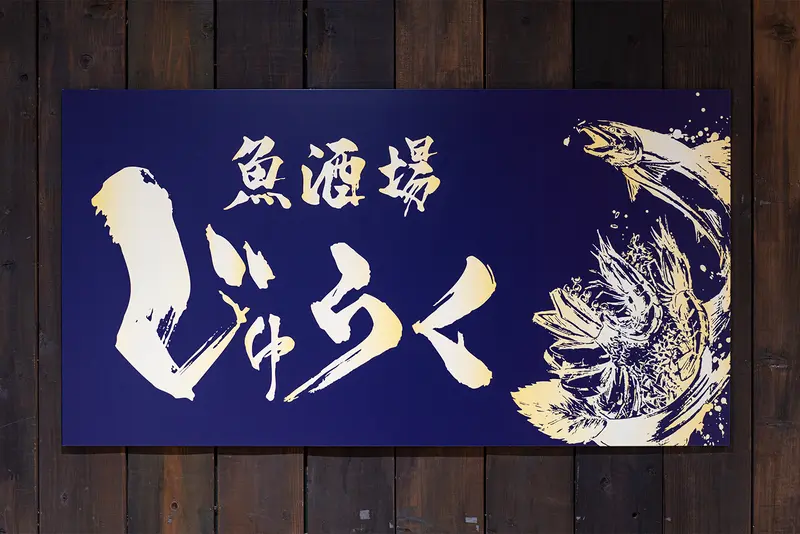 魚酒場
じゅらく